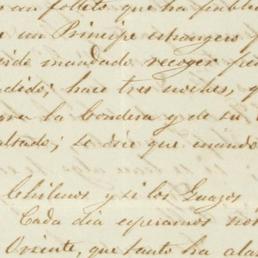 un folleto que ha publi
a un Principe estrangero
mandado recoger
hace tres noches, q
la bandera y de su
se dice que cuando
Chilenos y si los Guazos
Cada dia esperamos not
Oriente, que tanto ha ala